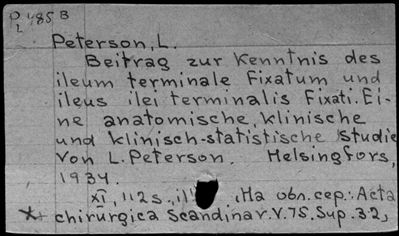 P 485 B
L
Peterson, L.
Beitrag zur Kenntnis des
ileum terminale fixatum und
ileus ilei terminalis fixati. Ei-
ne anatomische, klinische
und klinisch-statistische Studie
von L. Peterson. Helsingfors,
1934.
XI, 112 s., ill. , На обл. сер.: Acta
chirurgica Scandinav. V. 75. Sup. 32,